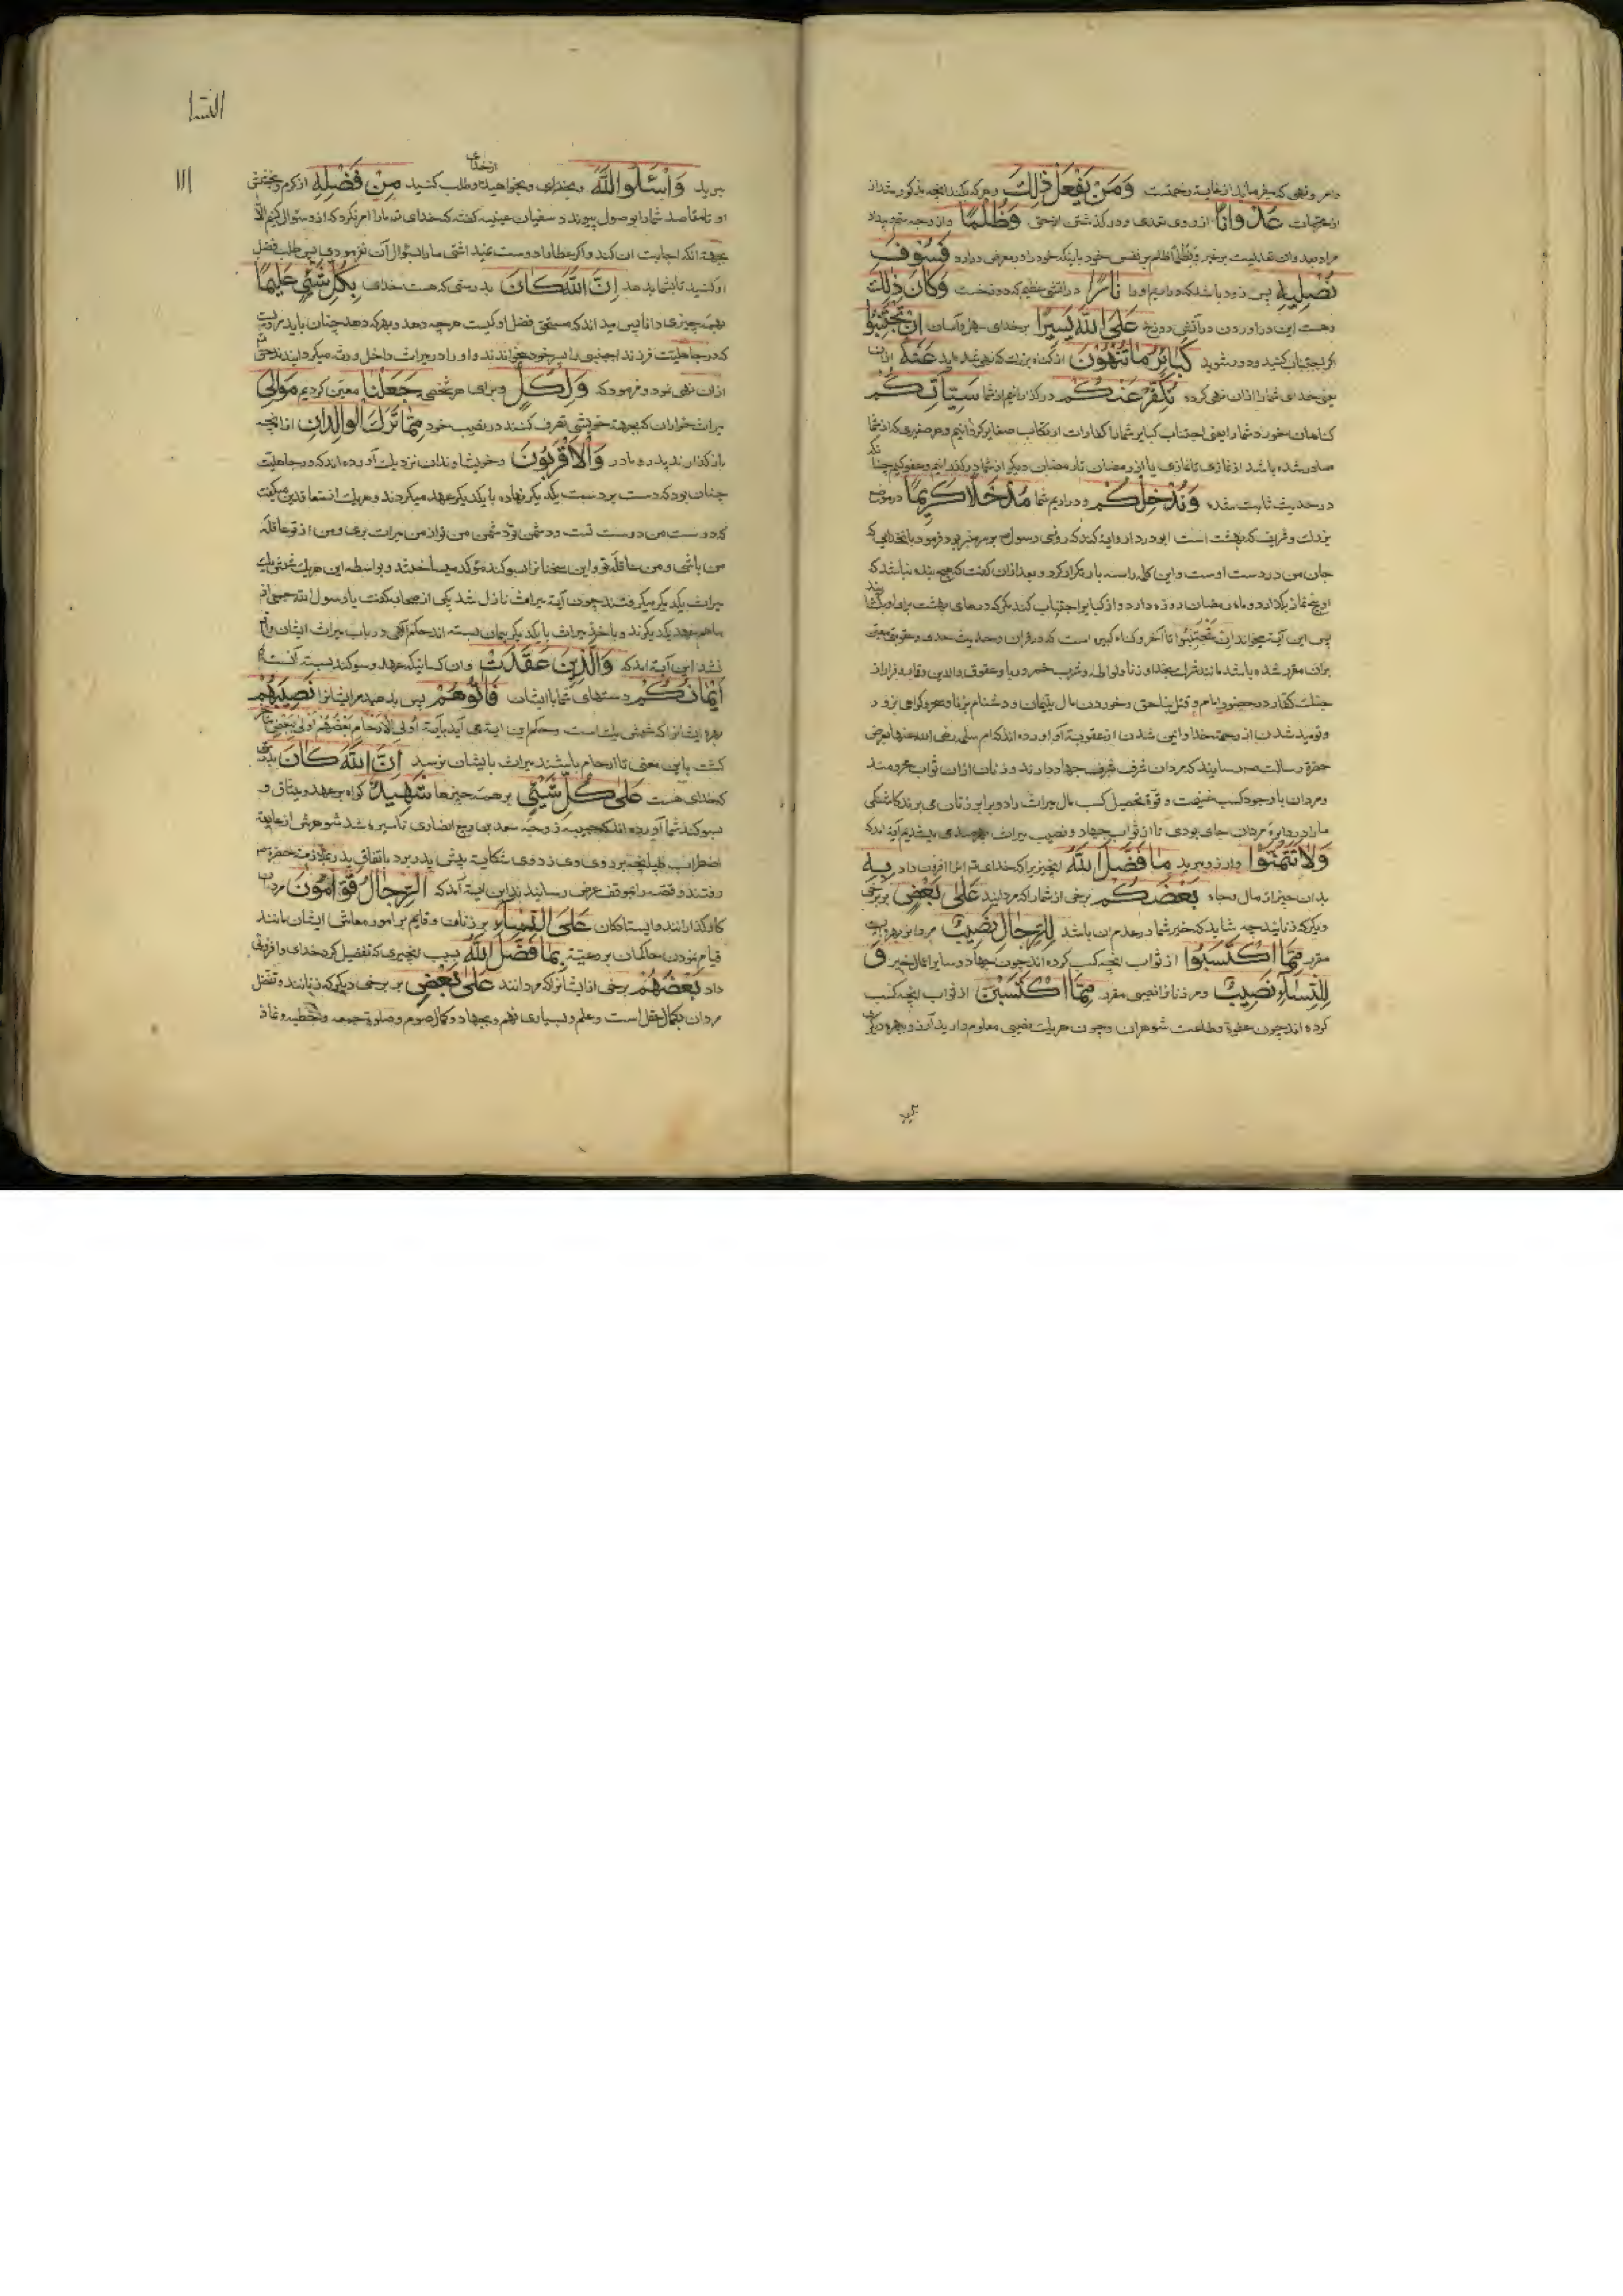 وامر ونهی که میفرماید از غایت رحمتست وَمَنْ يَفْعَلْ ذٰلِكَ وهر که بکند انچه مذکور شد از
از محرمات عُدْوَانًا از روی تعدی و درگذشتن از حق وَظُلْمًا واز وجه ستم
بر نفس خود فَسَوْفَ
نُصْلِيهِ پس زود باشد که دراریم او را نَارًا در اتشی عظیم که دوزخست وَكَانَ ذٰلِكَ
وهست این دراوردن در آتش دوزخ عَلَى اللّٰهِ يَسِيرًا بر خدای سهل و آسان اِنْ تَجْتَنِبُوا
اگر اجتناب کنید و دور شوید كَبَائِرَ مَا تُنْهَوْنَ از گناه بزرگ که نهی شده اید عَنْهُ ازان
یعنی خدای شما را ازان نهی کرده نُكَفِّرْ عَنْكُمْ درگذرانیم از شما سَيِّئَاتِكُمْ
کناهان خورد شما را یعنی اجتناب کبایر شما را کفارات ارتکاب صغایر گردانیم وهر صغیره که از شما
صادر شده باشد از نمازی تا نمازی یا از رمضان تا رمضان دیگر از شما درگذرانیم وعفو کنیم چنانکه
در حدیث ثابت شده وَنُدْخِلْكُمْ و دراریم شما مُدْخَلًا كَرِيمًا در موضع
بزرك وشریف که بهشت است ابودردا روایة کند که روزی رسول بر منبر بود فرمود بانخدایی که
جان من در دست اوست واین کلمه را سه بار تکرار کرد وبعد ازان کفت که هیچ بنده نباشد که
او پنج نماز بگذارد وماه رمضان روزه دارد واز کبایر اجتناب کند مکر که درهای بهشت برای او بگشایند
پس این آیة میخواند ان تجتنبوا تا آخر وگناه کبیره است که در قران وحدیث حدی وعقوبتی معین
بران مقرر شده باشد مانند شرك بخدا وزنا ولواطه وشرب خمر وربا وعقوق والدین وفرار از
جنك کفار در حضور امام وقتل بناحق وخوردن مال یتیمان ودشنام بزنا وسحر وکواهی بزور
ونومید شدن از رحمة خدا وایمن شدن از عقوبة او آورده اند که ام سلمه رضی الله عنها بعرض
حضرة رسالت رسانید که مردان شرف جهاد دارند وزنان ازان ثواب محرومند
ومردان با وجود کسب غنیمت وقوة تحصیل کسب مال میراث را دو برابر زنان می برند کاشکی
ما را در دایرهٔ مردان جای بودی تا از ثواب جهاد ونصیب میراث بهره مندی آیة امد که
وَلَا تَتَمَنَّوْا وارزو مبرید مَا فَضَّلَ اللّٰهُ انچیزیرا که خدای افزونی داد بِهِ
بدان چیز از مال وجاه بَعْضَكُمْ برخی از شما را که مردانید عَلٰى بَعْضٍ بر برخی
دیگر که زنانید چه شاید که خیر شما در عدم ان باشد لِلرِّجَالِ نَصِيبٌ مردانرا بهره ایست
مقرر مِمَّا اكْتَسَبُوا از ثواب انچه کسب کرده اند چون جهاد وسایر اعمال خیر وَ
لِلنِّسَاءِ نَصِيبٌ ومر زنانرا نصیبی مقرر مِمَّا اكْتَسَبْنَ از ثواب انچه کسب
کرده اند چون وطاعت شوهران وچون هریك نصیبی معلوم دارید آرزوی بهره دیگری
مبرید
النسا
۱۱۱
مبرید وَاسْئَلُوا اللّٰهَ وبخواهید وطلب کنید از خدای مِنْ فَضْلِهِ از کرم وبخشش
او تا مقاصد شما را بوصول پیوندد سفیان عیینه کفته که خدای تع ما را امر نکرد که ازو سئوال کنیم الا
بجهة انکه اجابت ان کند واکر عطا را دوست نمیداشتی ما را بسؤال آن نفرمودی پس طلب فضل
او کنید تا بشما بدهد اِنَّ اللّٰهَ كَانَ بدرستی که هست خدای بِكُلِّ شَيْءٍ عَلِيمًا
بهمه چیزی دانا پس میداند که مستحق فضل او کیست هرچه دهد وبهر که دهد چنان باید
که در جاهلیت فرزند اجنبی را پسر خود میخواندند واو را در میراث داخل ورثه میکردانیدند حق
ازان نهی نمود وفرمود که وَلِكُلٍّ وبرای هر شخصی جَعَلْنَا معین کردیم مَوَالِيَ
میراث خواران که بجهة خویشی تصرف کنند در نصیب خود مِمَّا تَرَكَ الْوَالِدَانِ از انچه
بازگذارند پدر ومادر وَالْاَقْرَبُونَ وخویشاوندان نزدیك آورده اند که در جاهلیت
چنان بود که دست بر دست یکدیکر نهاده با یکدیکر عهد میکردند وهریك از متعاقدین میکفت
که دوست من دوست تست ودشمن تو دشمن من تو از من میراث بری ومن از تو عاقله
من باشی ومن عاقله تو واین سخنانرا بسوکند مؤکد میساختند وبواسطه این هریك
میراث یکدیکر میکرفتند چون آیة میراث نازل شد یکی از صحابه کفت یا رسول الله جمعی از
ما هم عهد یکدیکرند وباخذ میراث با یکدیکر پیمان بسته اند حکم الهی در باب میراث ایشان
نشد این آیة امد که وَالَّذِينَ عَقَدَتْ وان کسانیکه عهد وسوکند بسته است
اَيْمَانُكُمْ دستهای شما با ایشان فَاٰتُوهُمْ پس بدهید مر ایشانرا نَصِيبَهُمْ
بهره ایشانرا که شش یك است وحکم این ایة بآیة اولی الارحام بعضهم اولی ببعض
کشت باین معنی تا ارحام باشند میراث بایشان نرسد اِنَّ اللّٰهَ كَانَ بدرستی
که خدای هست عَلٰى كُلِّ شَيْءٍ بر همه چیزها شَهِيدًا کواه بر عهد ومیثاق و
سوکند شما آورده اند که حبیبه زوجه سعد بن ربیع انصاری شد شوهرش از غایة
اضطراب طپانچه بر روی وی زد وی شکایة پیش پدر برد باتفاق پدر بملازمت حضرة
رفتند وقصه را بموقف عرض رسانیدند این ایة آمد که اَلرِّجَالُ قَوَّامُونَ مردان
کارگذارانند وایستادکان عَلَى النِّسَاءِ بر زنان وقایم بر امور معاش ایشان مانند
قیام نمودن حاکمان بر رعیة بِمَا فَضَّلَ اللّٰهُ بسبب انچیزی که تفضیل کرد خدای وافزونی
داد بَعْضَهُمْ برخی از ایشانرا که مردانند عَلٰى بَعْضٍ بر برخی دیگر که زنانند وتفضل
مردان بکمال عقل است وعلم وبسیاری فهم وبجهاد وکمال صوم وصلوة جمعه وخطبه ونماز